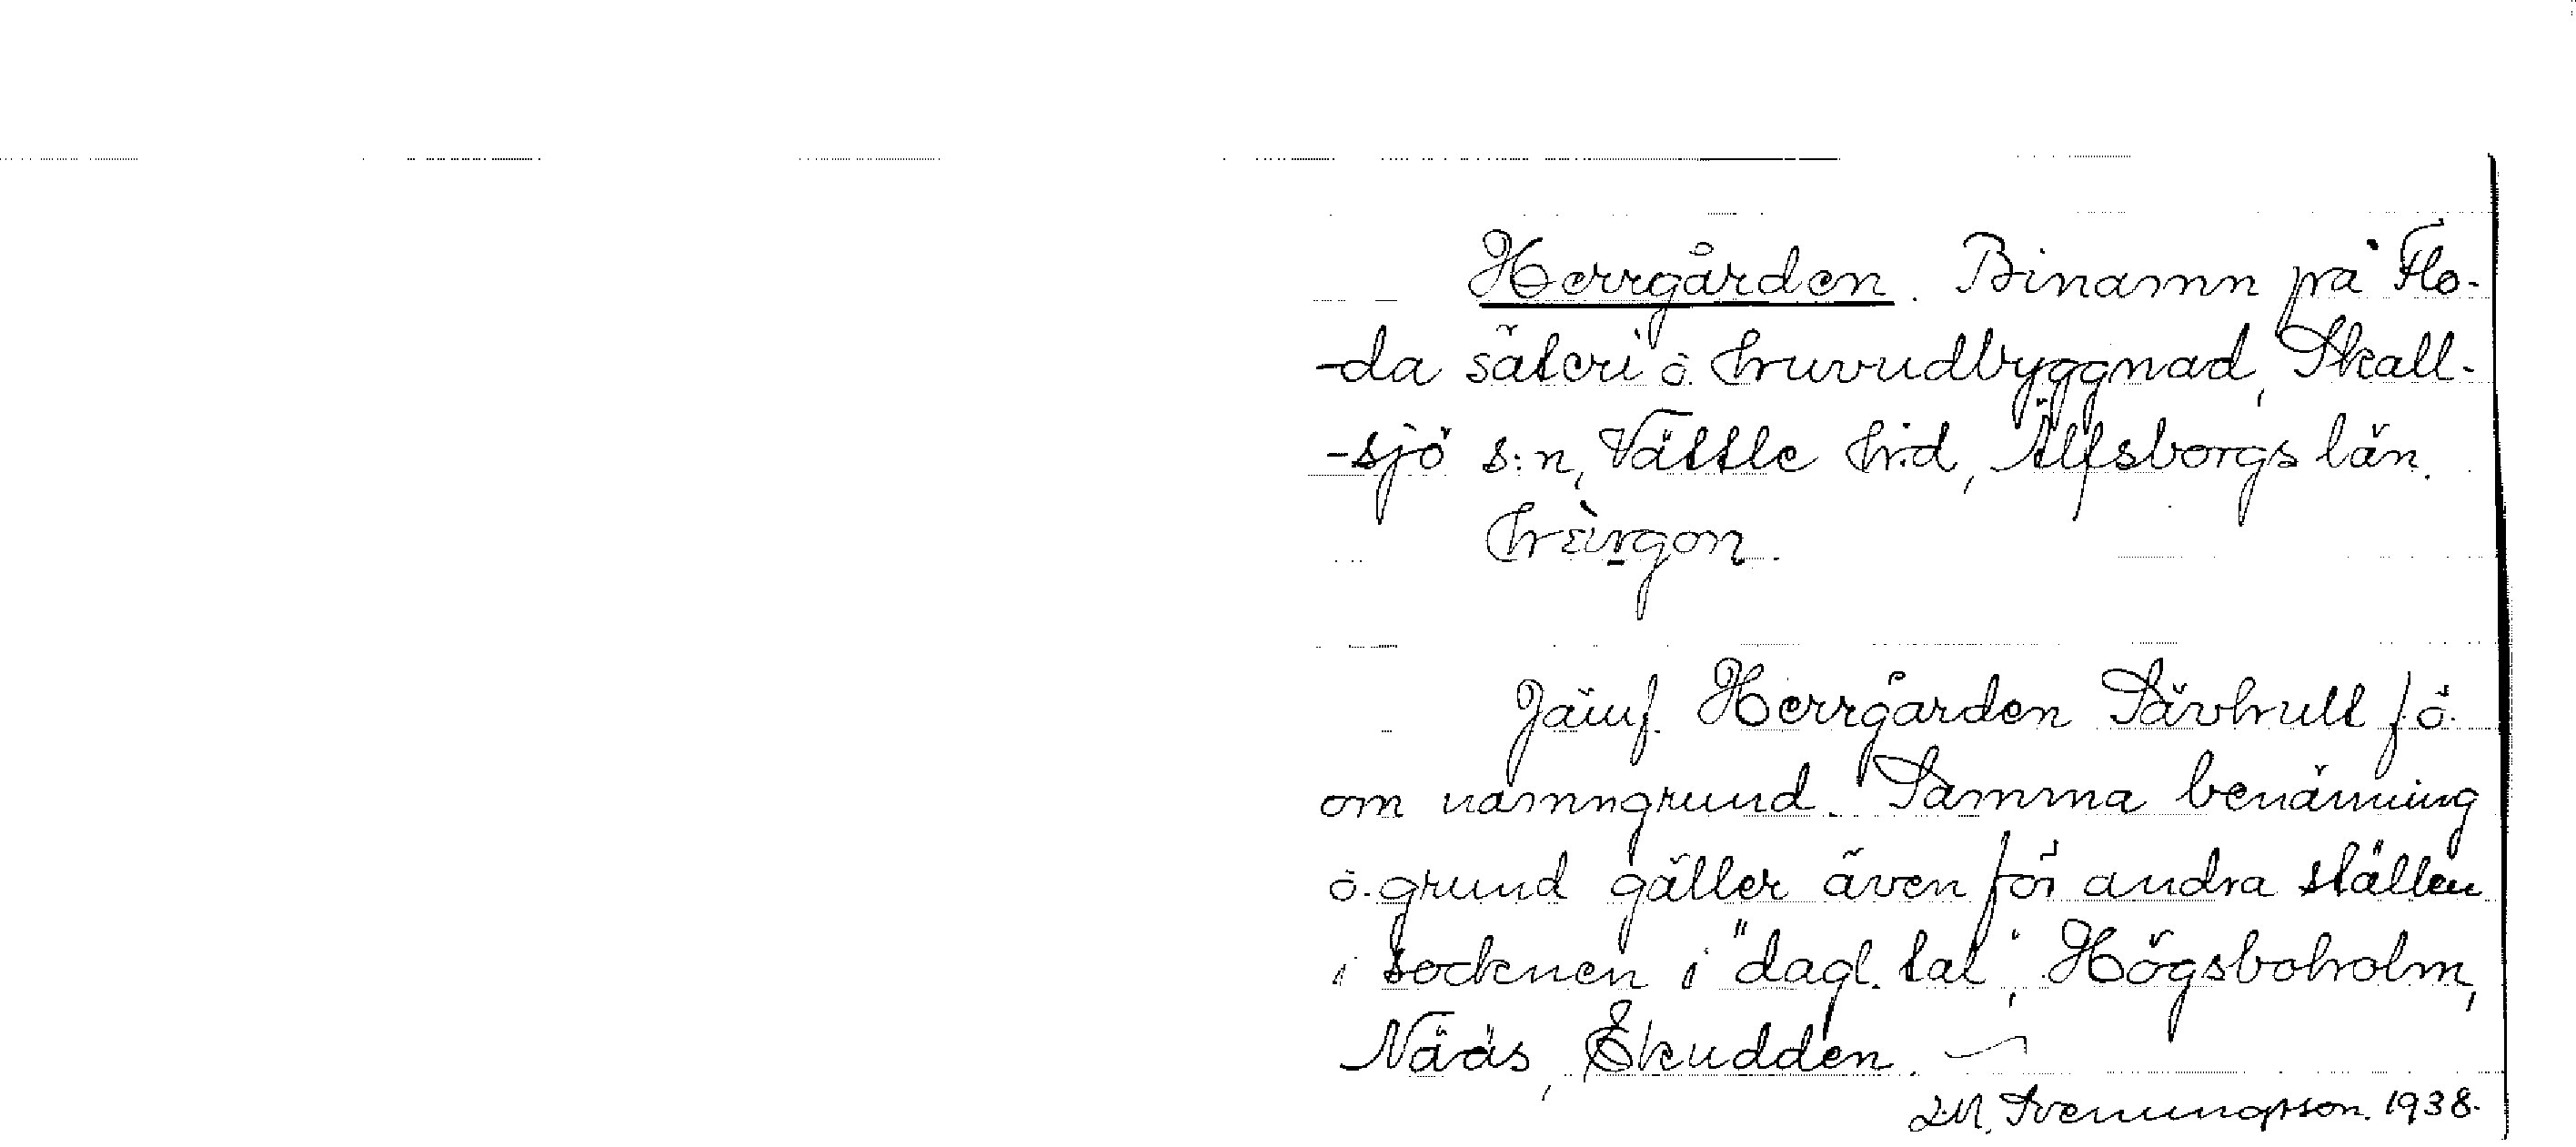 Herrgården. Binamn på Flo-
-da säteri o. huvudbyggnad, Skall-
-sjö s:n, Vättle h:d, Älfsborgs län.
Jämf. Herrgården Sävhult f.ö.
om namngrund. Samma benämning
o. grund gäller även för andra ställen
i socknen i "dagl. tal", Högsboholm,
Nääs, Ekudden.
Svenungsson. 1938.